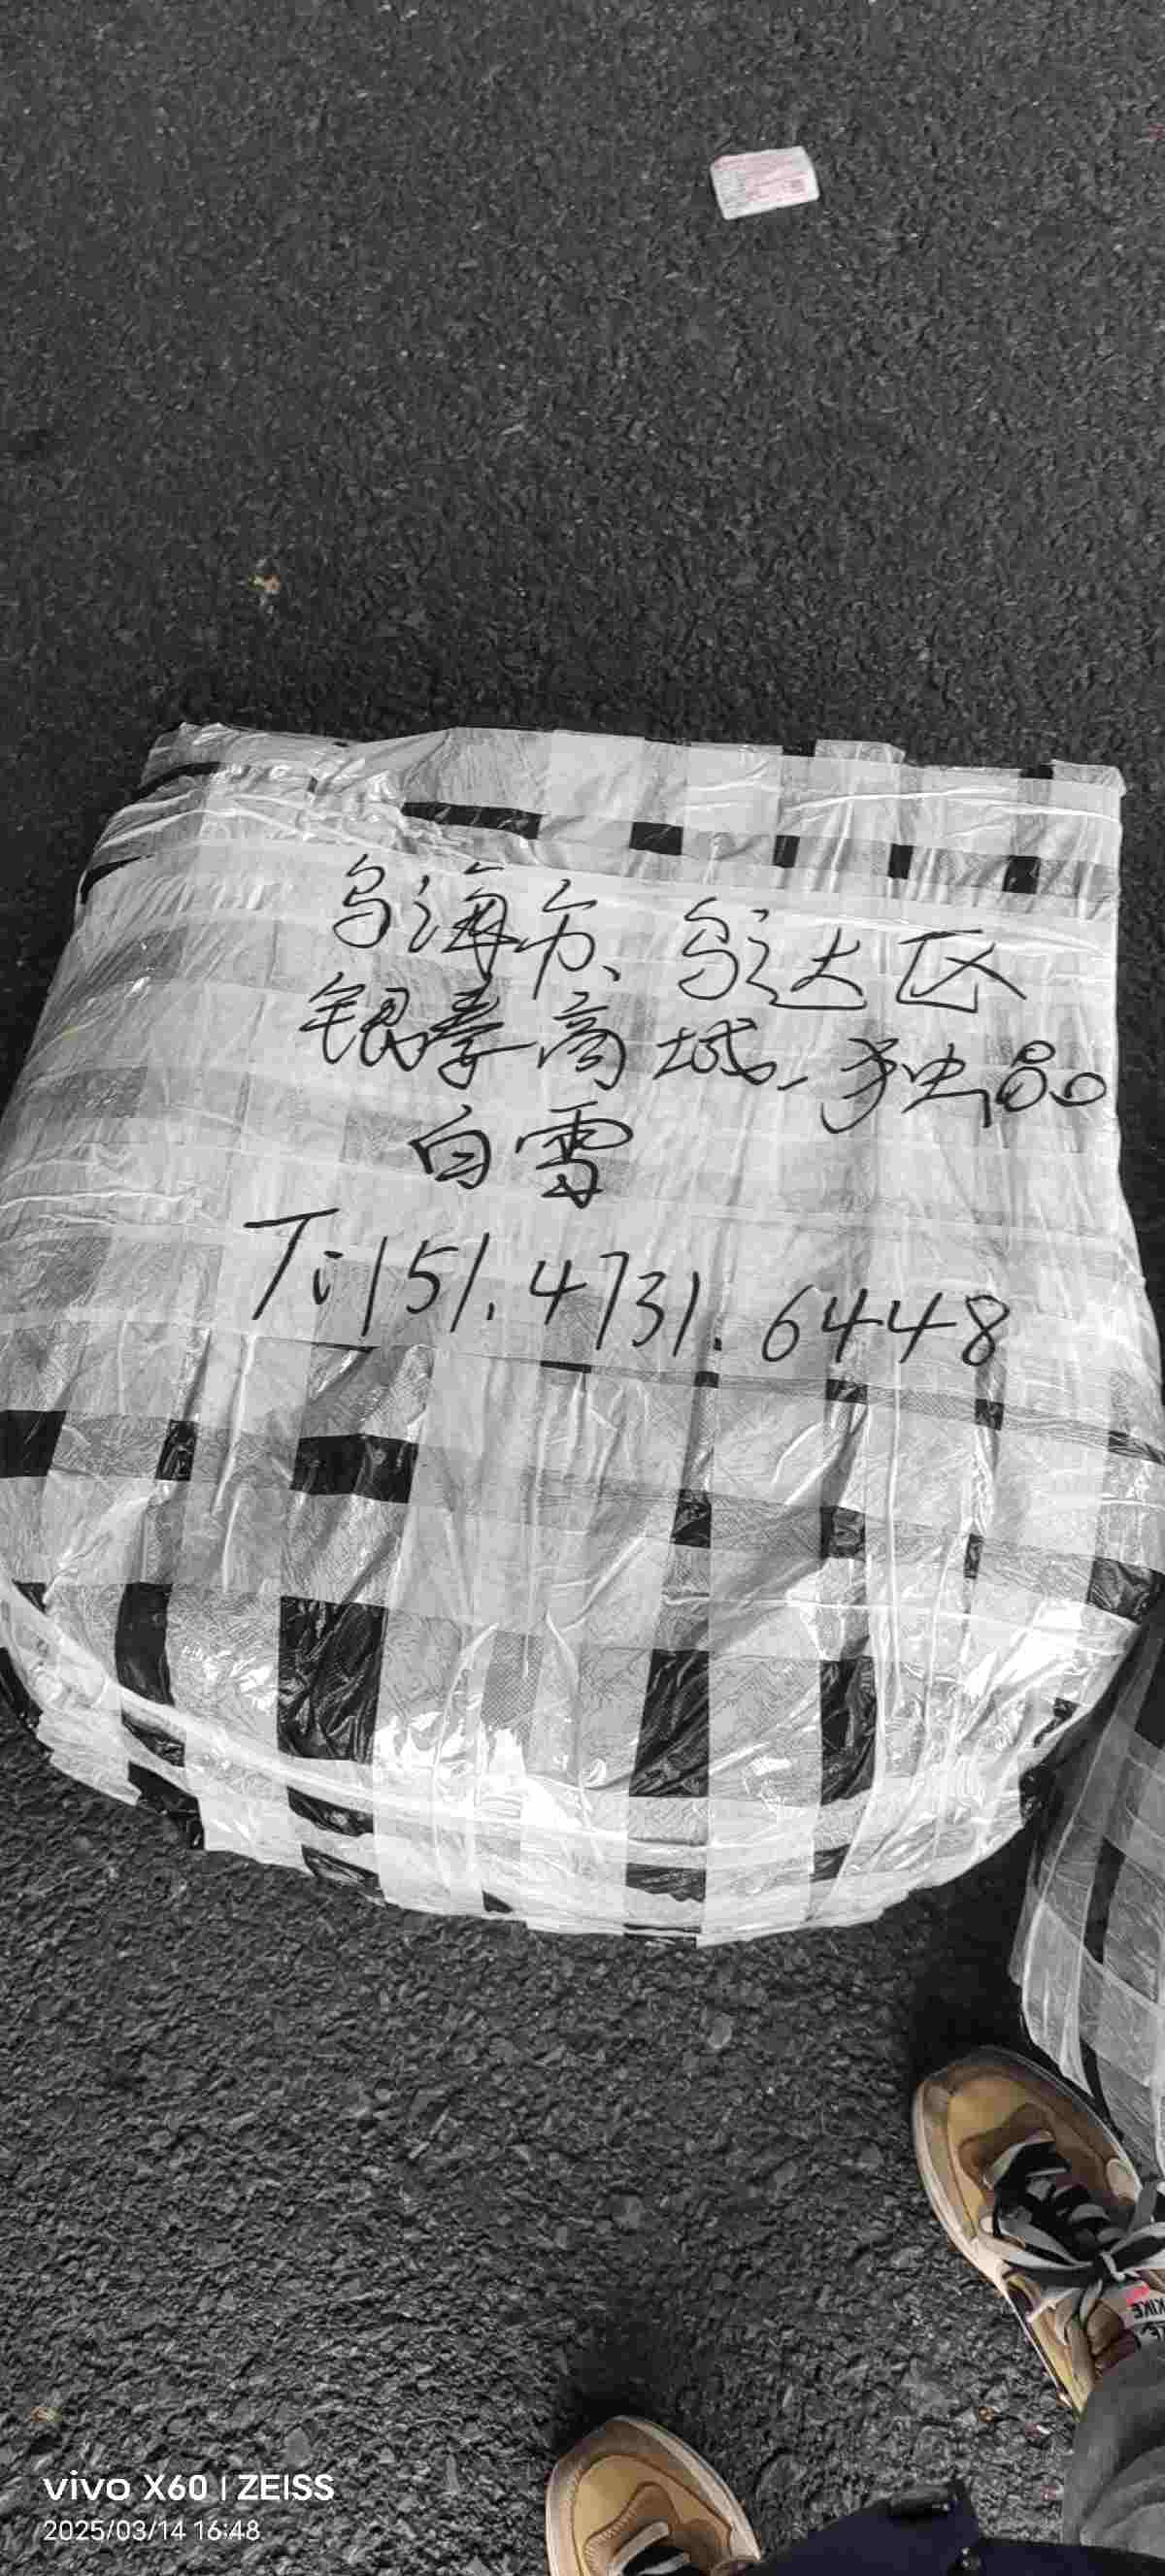 乌海市、乌达区
银泰商城、独品
白雪
T:151.4731.6448
vivo X60 | ZEISS
2025/03/14 16:48